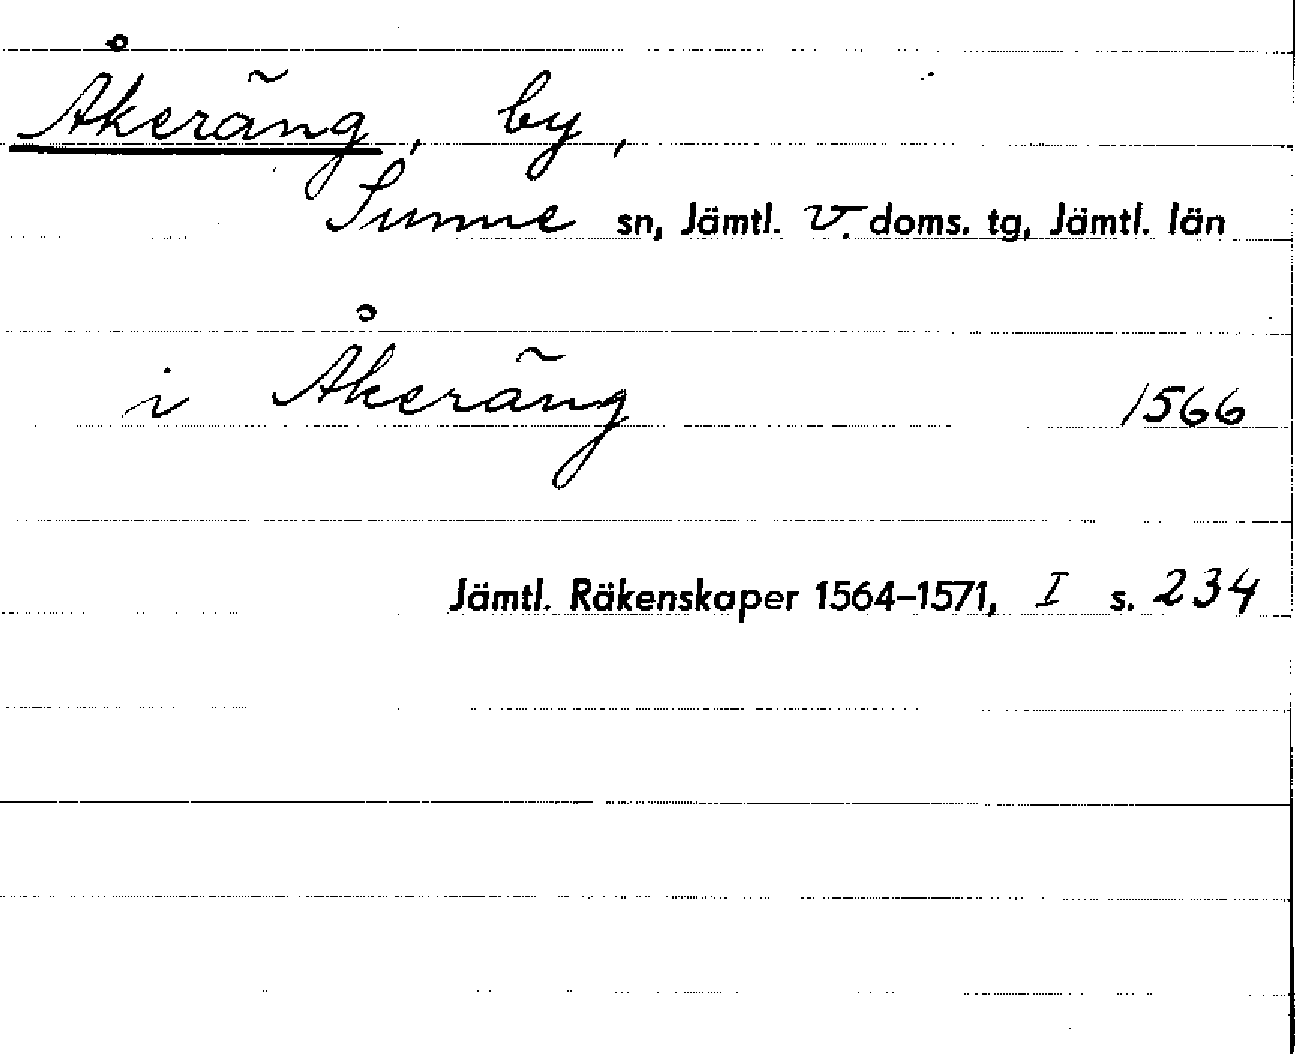 Åkeräng, by,
Sunne sn, Jämtl. v. doms. tg, Jämtl. län
i Åkeräng 1566
Jämtl. Räkenskaper 1564–1571, I s. 234